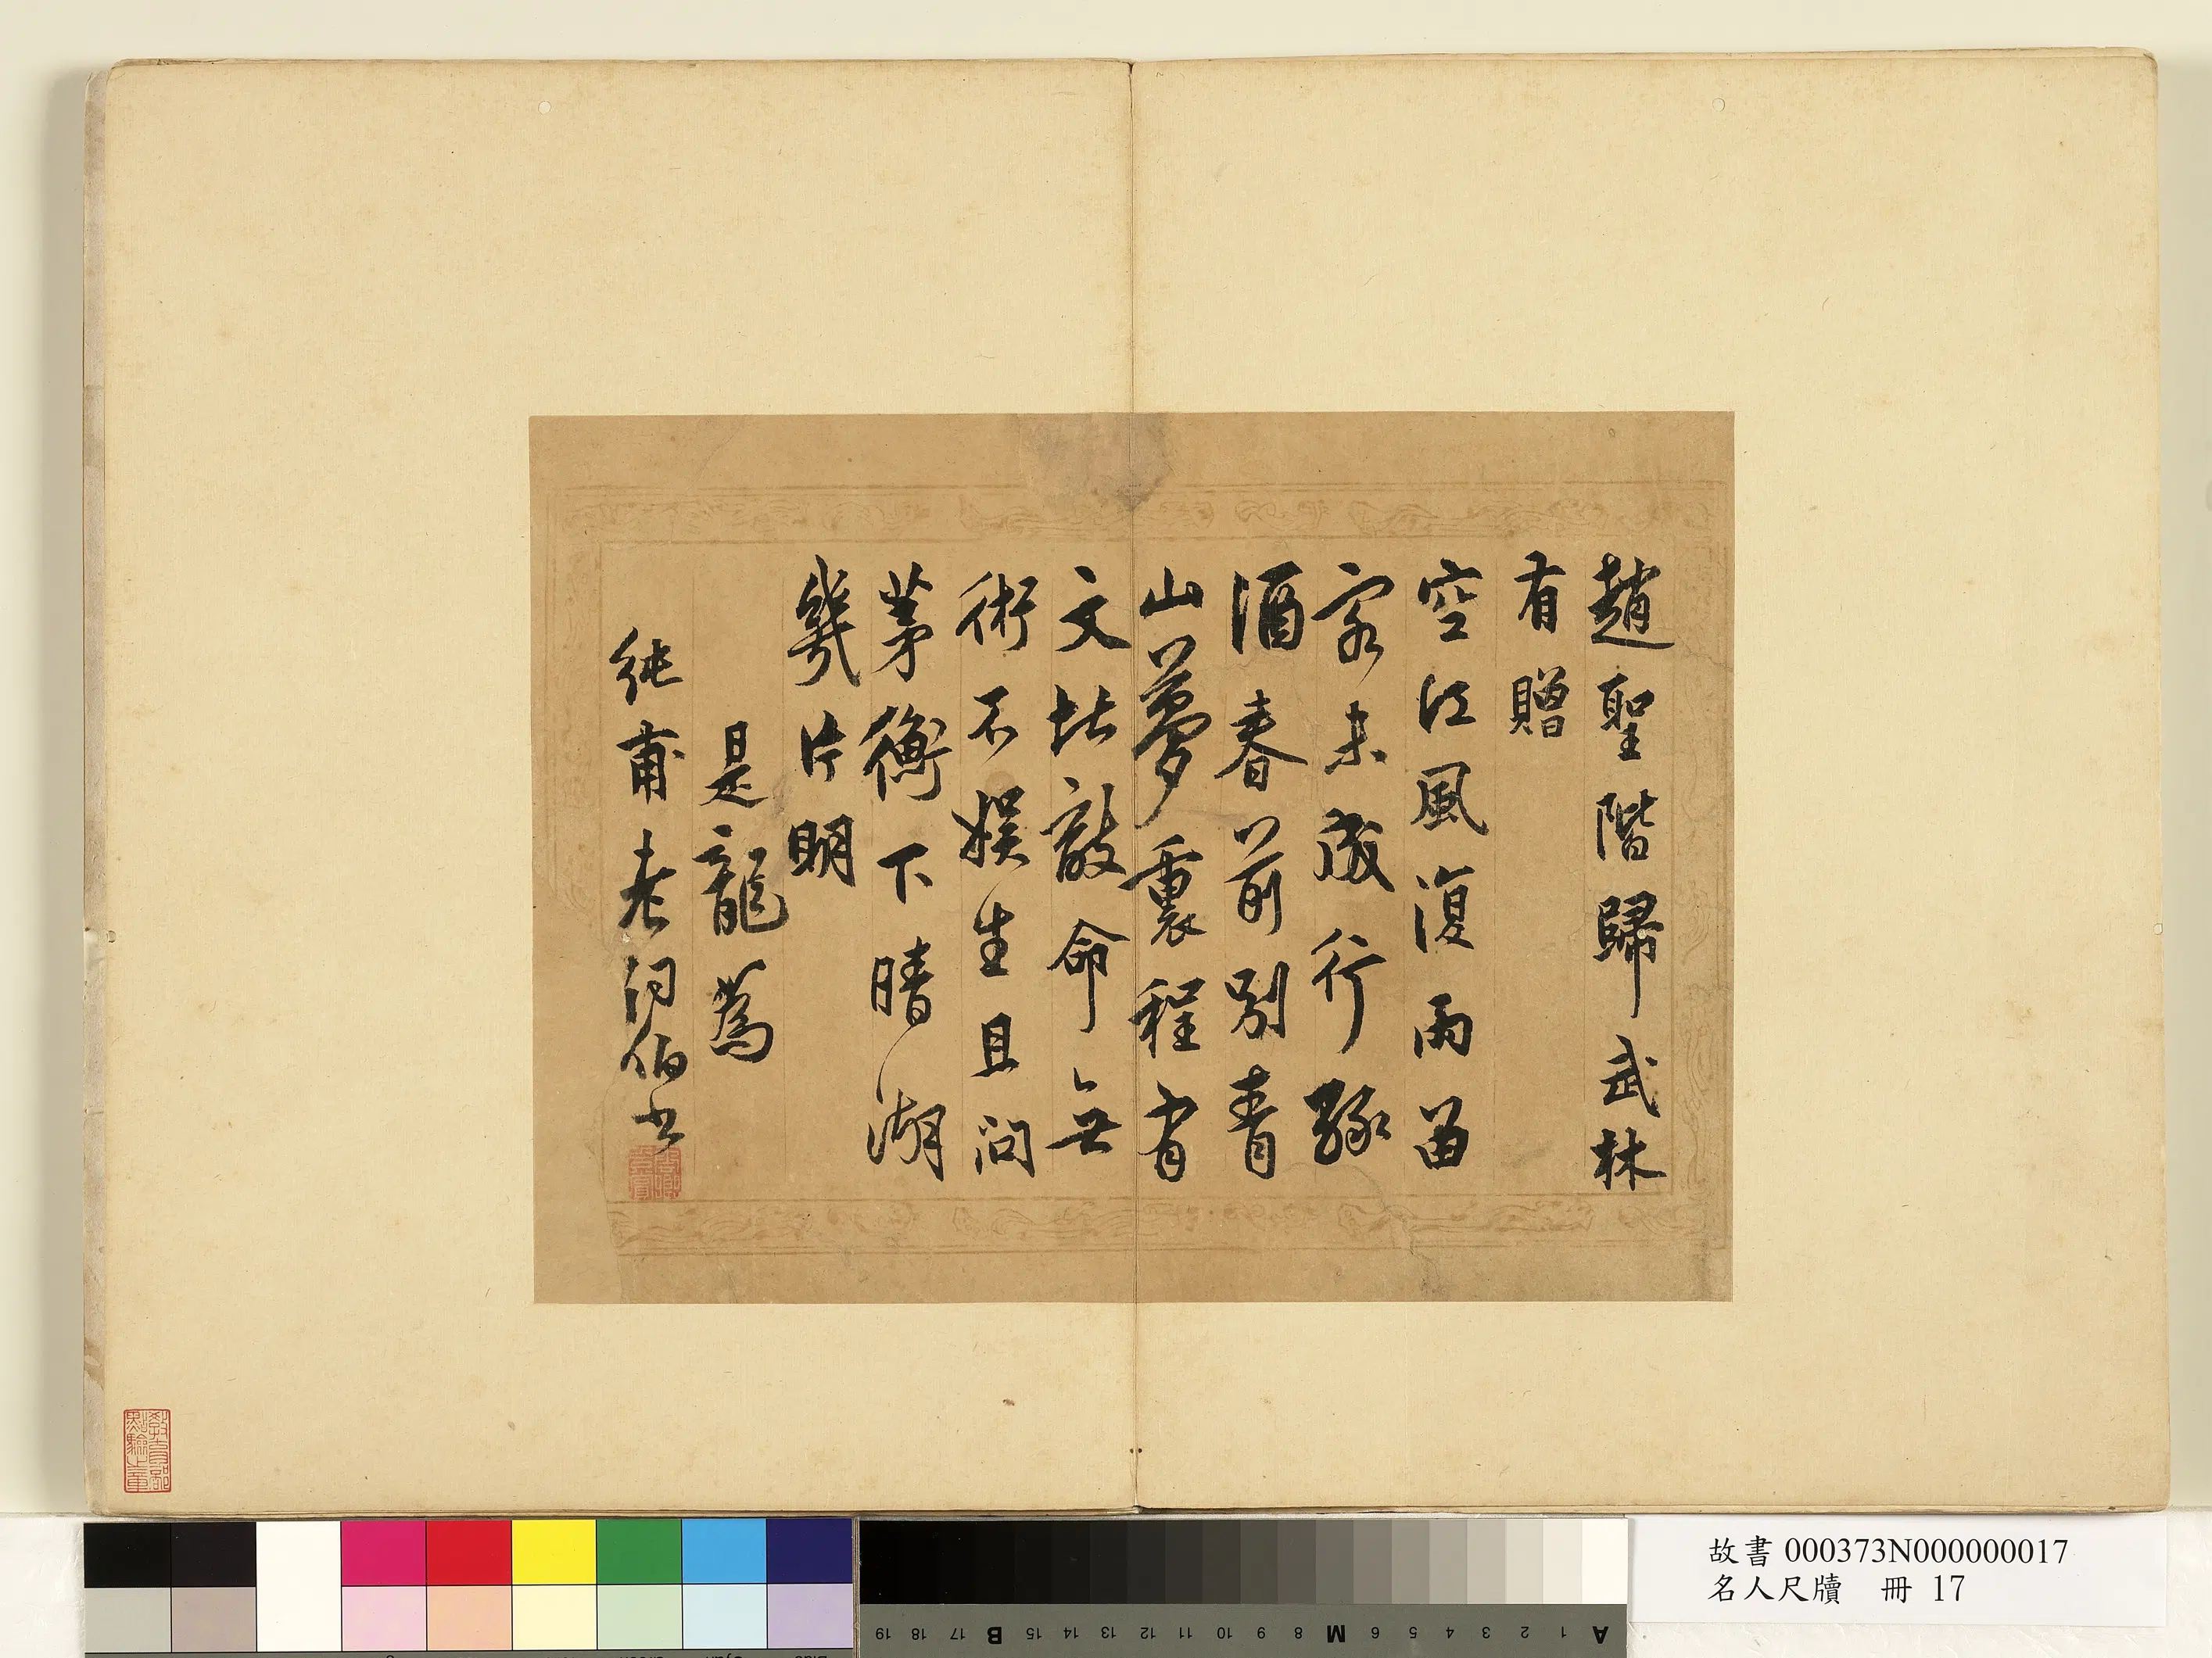 趙聖階歸武林
有贈
空江風復雨留
客未成行綠
酒春前別青
山夢裏程有
文堪敵命無
術不娛生且問
茅衡下晴湖
幾片明
是龍為
純甫老詞伯書
教育部
點驗之章
故書 000373N000000017
名人尺牘 冊 17
A 1 2 3 4 5 6 M 8 9 10 11 12 13 14 15 B 17 18 19